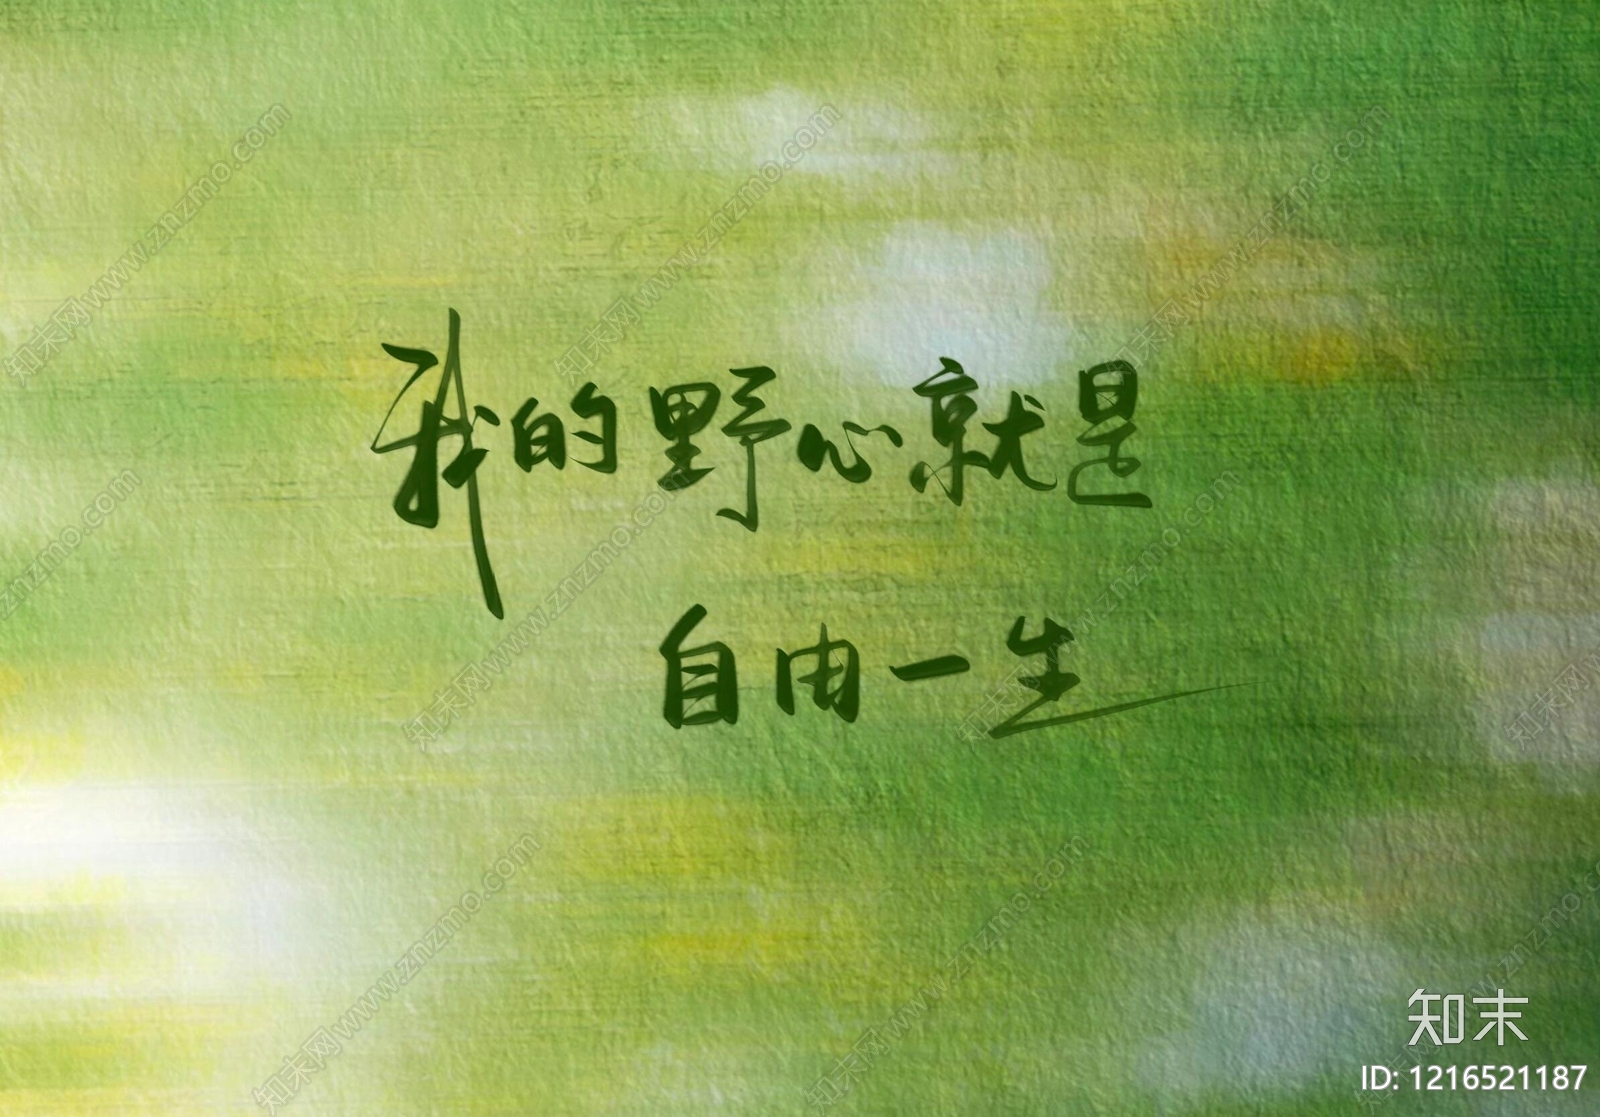 我的野心就是
自由一生
知末
ID: 1216521187
知末网www.znzmo.com